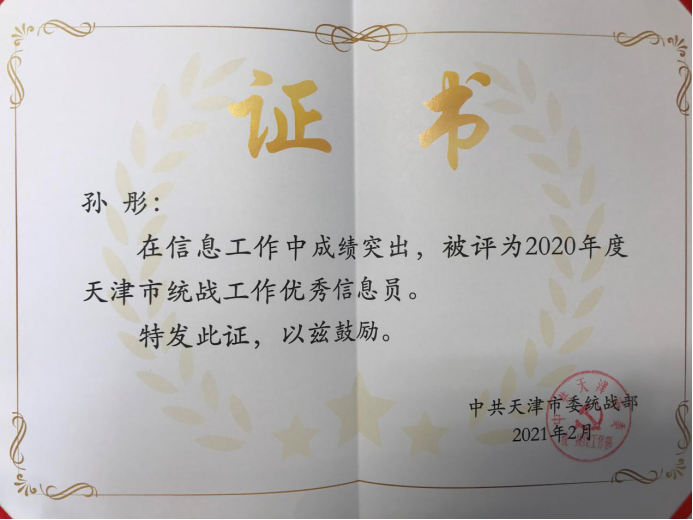 证书
孙彤：
在信息工作中成绩突出，被评为2020年度
天津市统战工作优秀信息员。
特发此证，以兹鼓励。
中共天津市委统战部
2021年2月